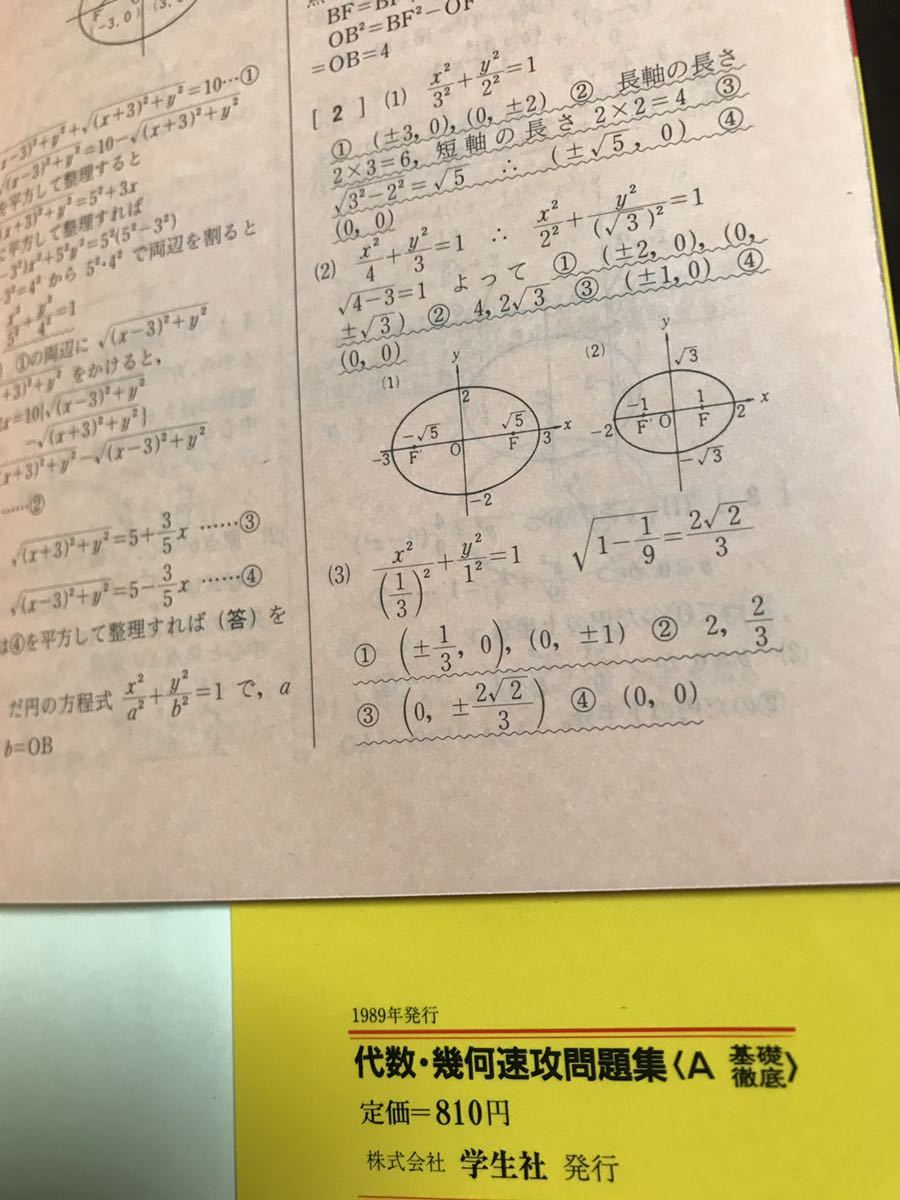 (-3, 0)
(x-3)²+y²+√(x+3)²+y²=10…①
√(x-3)²+y²=10-√(x+3)²+y²
を平方して整理すると
(x+3)²+y²=5²+3x
平方して整理すれば
-3²)x²+5²y²=5²(5²-3²)
-3²=4² から 5²・4² で両辺を割ると
x²/5²+y²/4²=1
①の両辺に √(x-3)²+y²
+3)²+y² をかけると,
x=10{√(x-3)²+y²
-√(x+3)²+y²}
(x+3)²+y²-√(x-3)²+y²
……②
√(x+3)²+y²=5+3/5x ……③
√(x-3)²+y²=5-3/5x ……④
は④を平方して整理すれば(答)を
だ円の方程式 x²/a²+y²/b²=1 で, a
b=OB
BF=BF
OB²=BF²-OF
=OB=4
[2] (1) x²/3²+y²/2²=1
① (±3, 0), (0, ±2) ② 長軸の長さ
2×3=6, 短軸の長さ 2×2=4 ③
√3²-2²=√5 ∴ (±√5, 0) ④
(0, 0)
(2) x²/4+y²/3=1 ∴ x²/2²+y²/(√3)²=1
√4-3=1 よって ① (±2, 0), (0,
±√3) ② 4, 2√3 ③ (±1, 0) ④
(0, 0)
(1)
y
2
-√5
√5
-3
F'
O
F
3
x
-2
(2)
y
√3
-1
1
-2
F'
O
F
2
x
-√3
(3) x²/(1/3)²+y²/1²=1 √1-1/9=2√2/3
① (±1/3, 0), (0, ±1) ② 2, 2/3
③ (0, ±2√2/3) ④ (0, 0)
1989年発行
代数・幾何速攻問題集〈A 基礎徹底〉
定価=810円
株式会社 学生社 発行